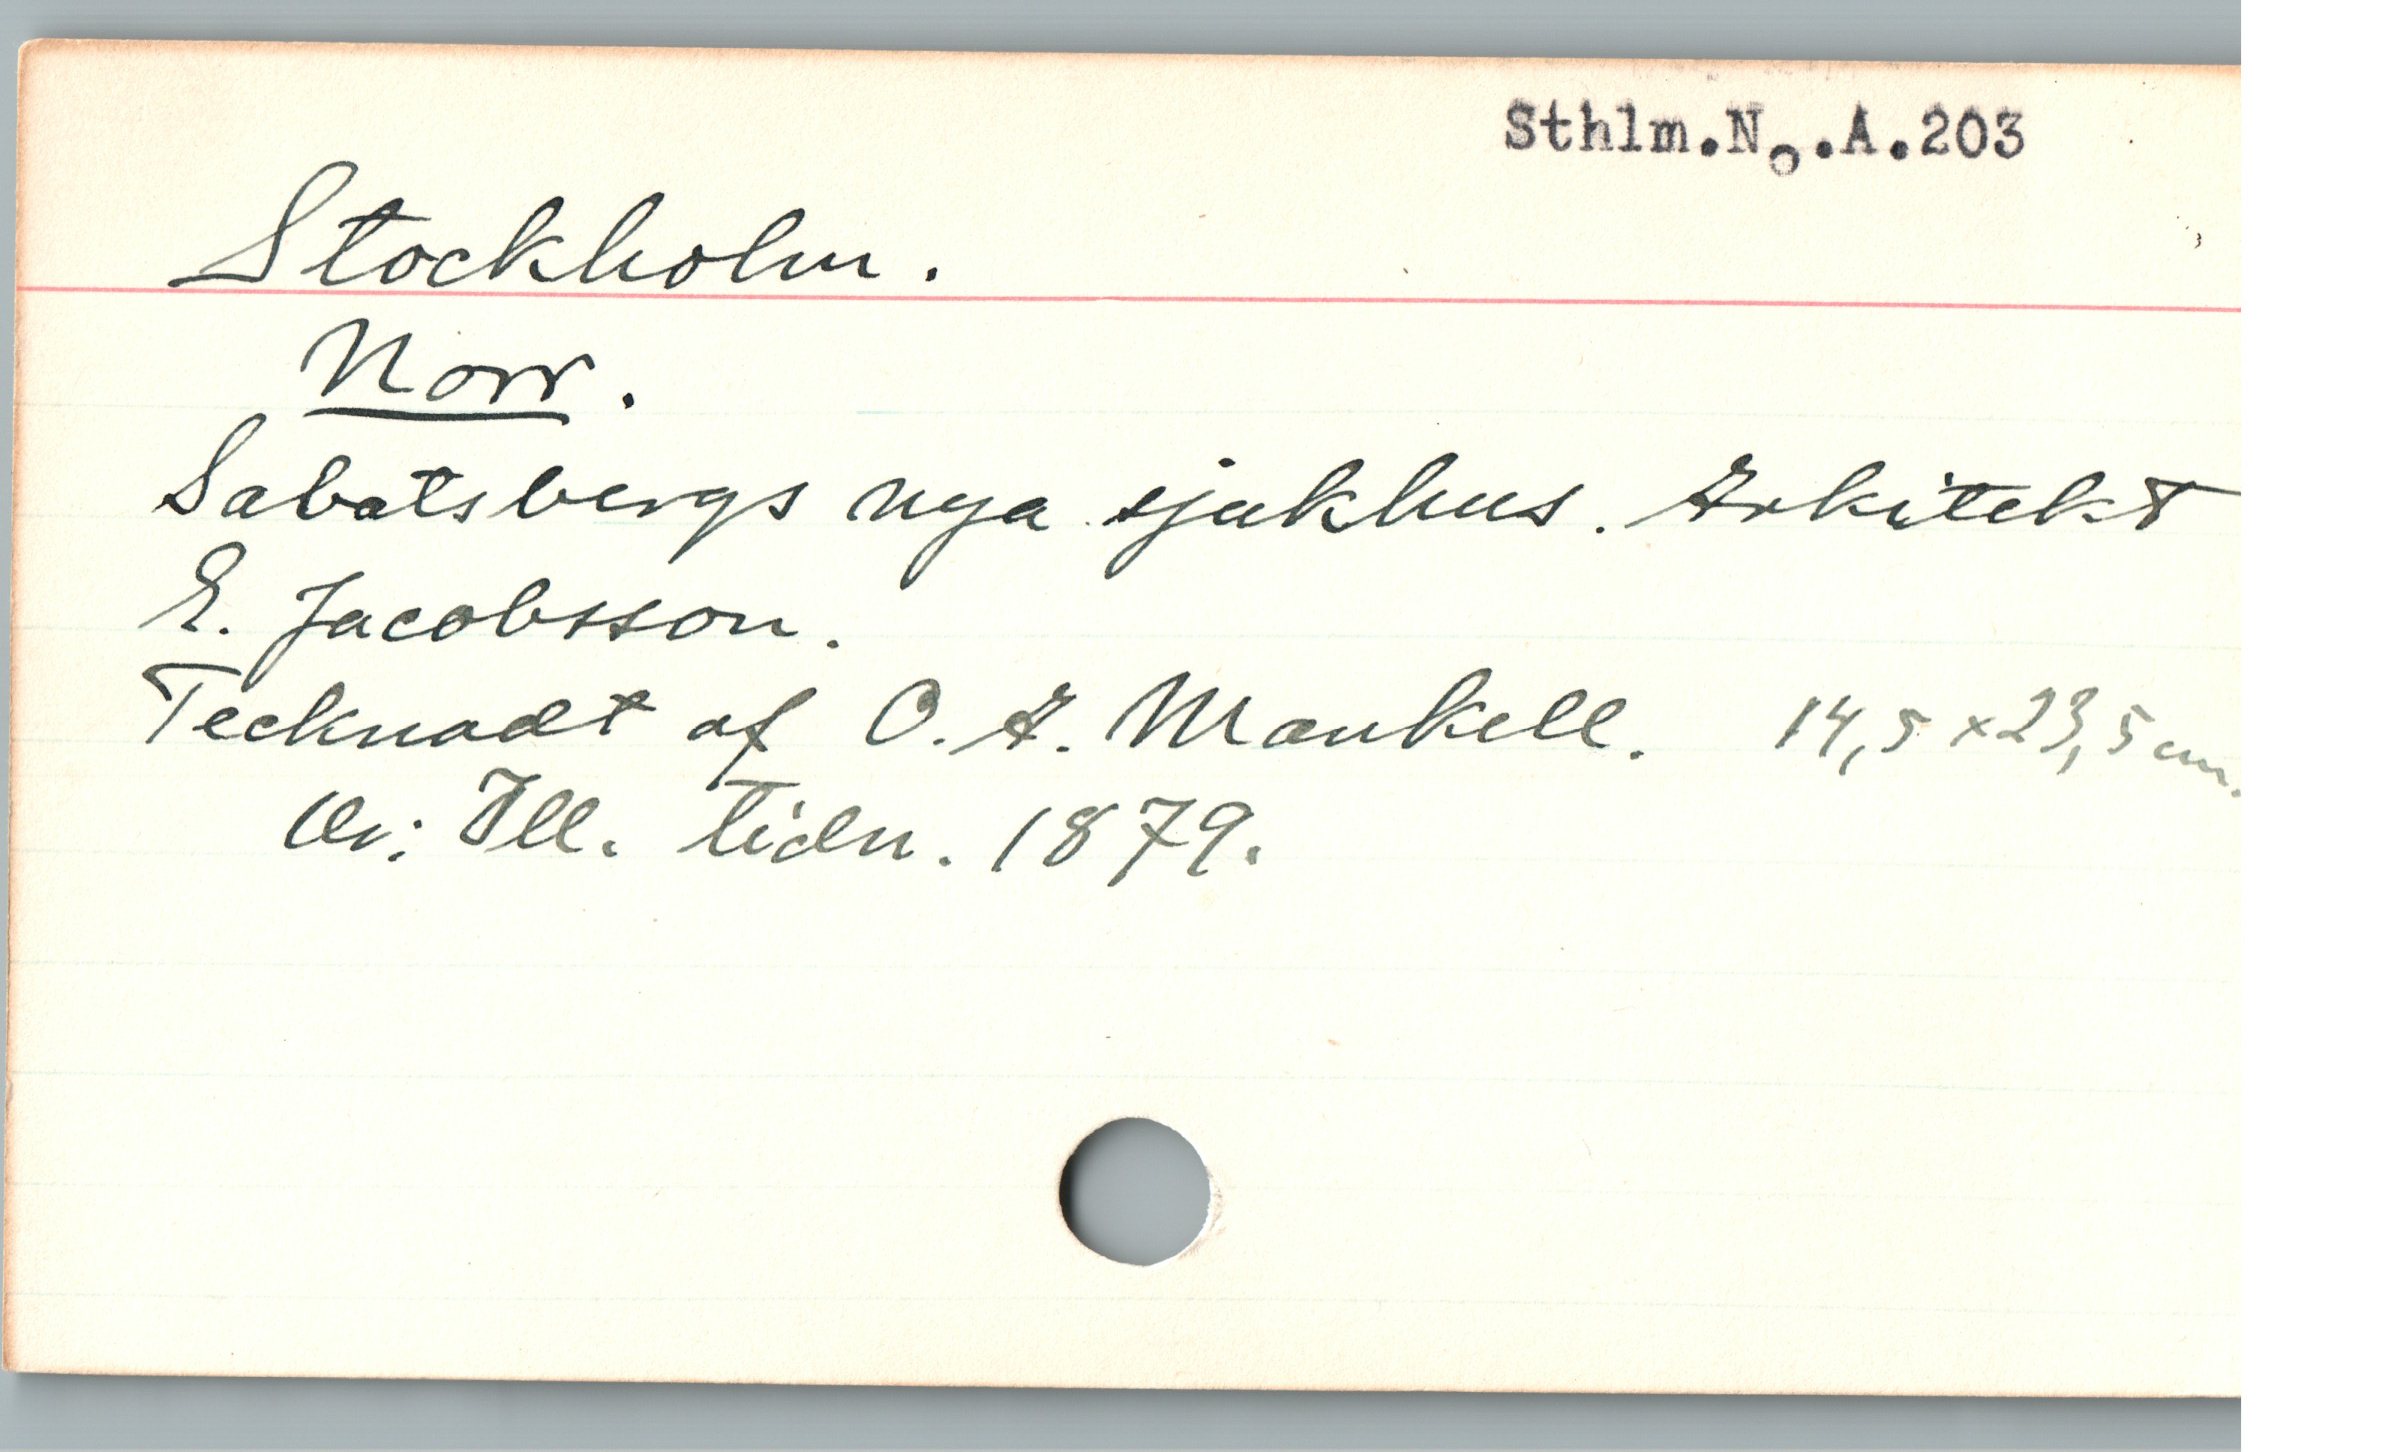 Sthlm.No.A.203
Stockholm.
Norr.
Sabatsbergs nya sjukhus. Arkitekt
E. Jacobsson.
Tecknadt af O. A. Mankell. 14,5 x 23,5 cm.
Ur: Ill. tidn. 1879.